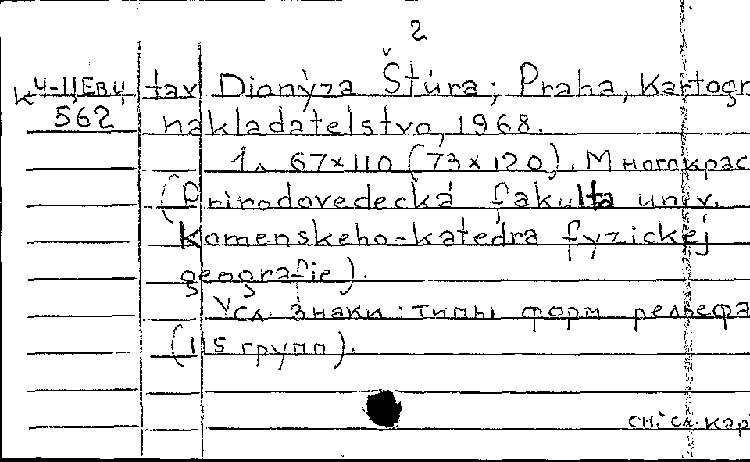 2
К Ч-Ц,ЕВЦ tav Dionýza Štúra; Praha, Kartogr
562 nakladatelstvo, 1968.
1л 67×110 (73×120). Многокрас
(Prirodovedecká fakulta univ.
Komenskeho-katedra fyzickej
geografie).
Усл. знаки: типы форм рельефа
(115 групп).